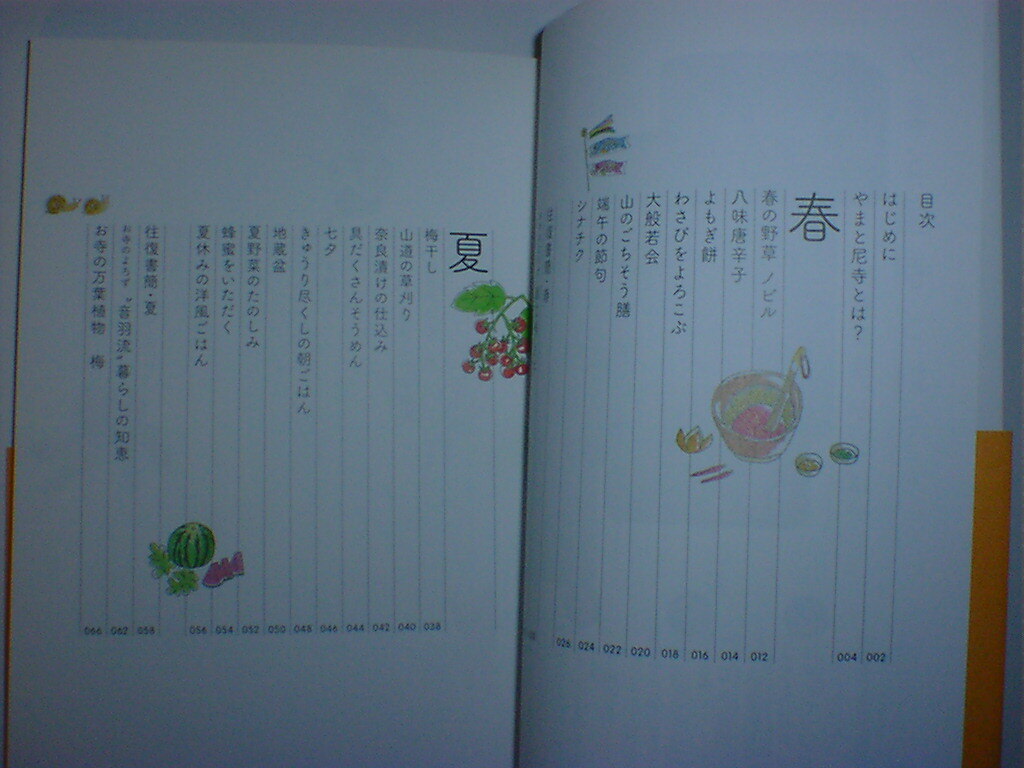 目次
はじめに 002
やまと尼寺とは? 004
春
春の野草 ノビル 012
八味唐辛子 014
よもぎ餅 016
わさびをよろこぶ 018
大般若会 020
山のごちそう膳 022
端午の節句 024
シナチク 026
往復書簡・春
夏
梅干し 038
山道の草刈り 040
奈良漬けの仕込み 042
具だくさんそうめん 044
七夕 046
きゅうり尽くしの朝ごはん 048
地蔵盆 050
夏野菜のたのしみ 052
蜂蜜をいただく 054
夏休みの洋風ごはん 056
往復書簡・夏 058
お寺のよろず〝音羽流〟暮らしの知恵 062
お寺の万葉植物 梅 066